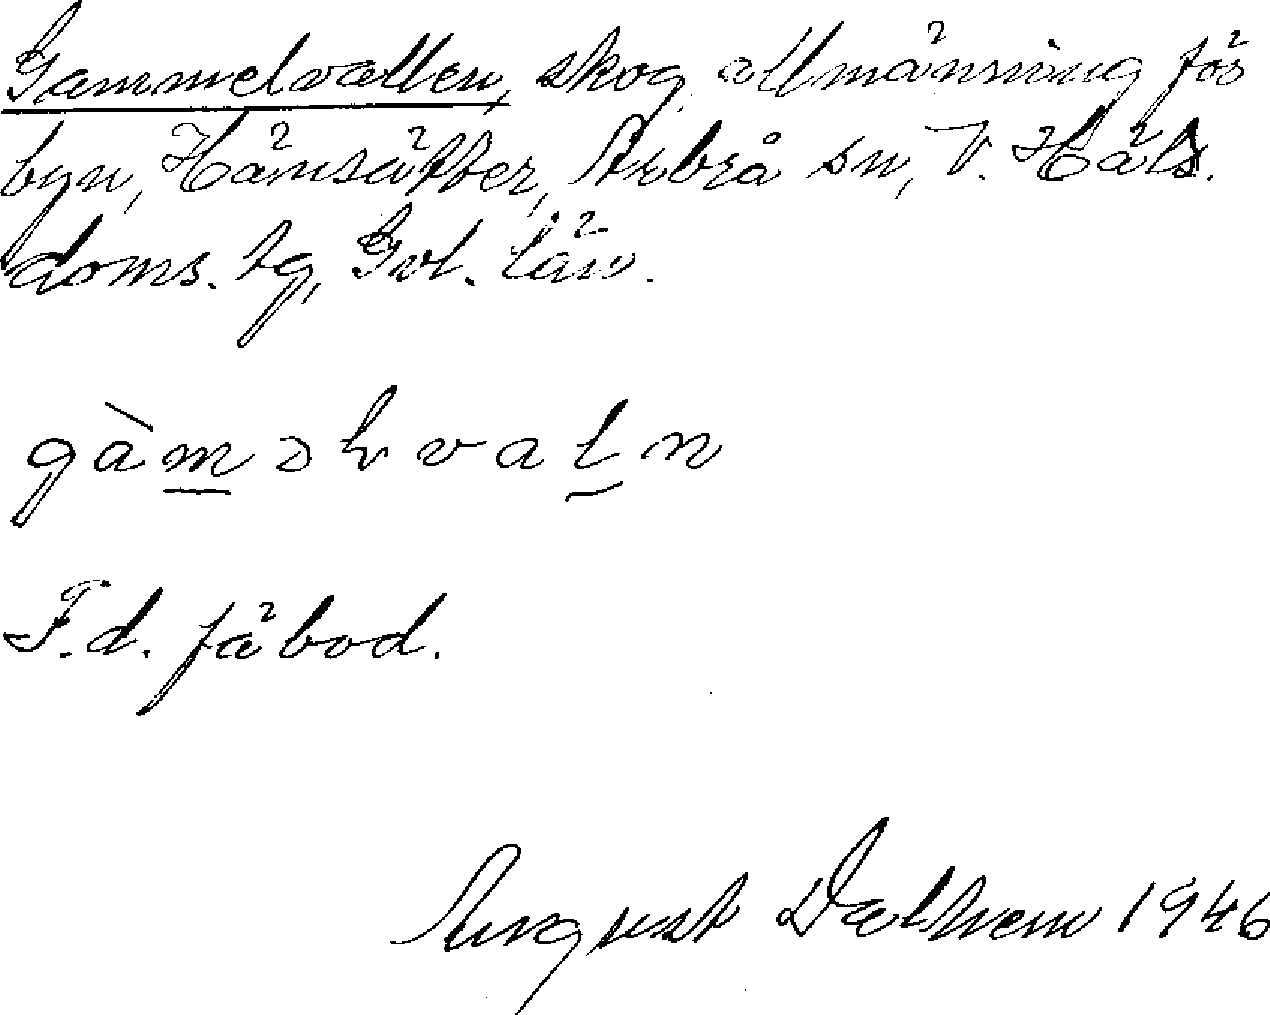 Gammelvallen, skog, allmänning för
byn, Hänsätter, Arbrå sn, V. Häls.
doms. lg, Gvl. län.
gàmələvaḷn
F.d. fäbod.
August Dalhem 1946